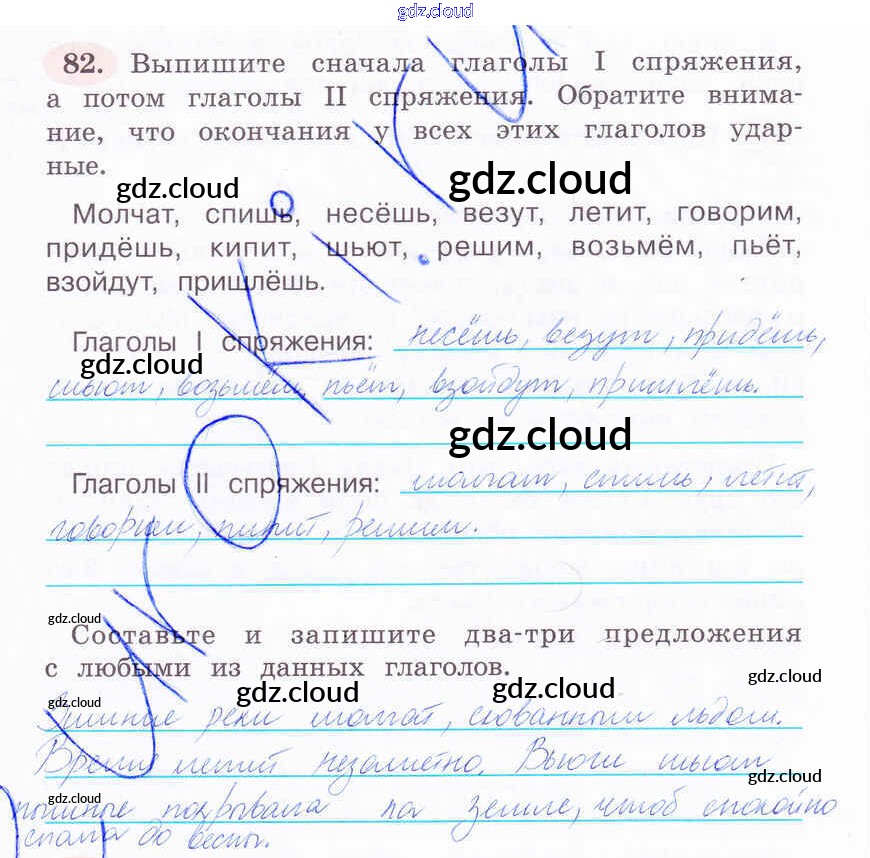 gdz.cloud
82. Выпишите сначала глаголы I спряжения,
а потом глаголы II спряжения. Обратите внима-
ние, что окончания у всех этих глаголов удар-
ные.
gdz.cloud gdz.cloud
Молчат, спишь, несёшь, везут, летит, говорим,
придёшь, кипит, шьют, решим, возьмём, пьёт,
взойдут, пришлёшь.
Глаголы I спряжения: несёшь, везут, придёшь,
gdz.cloud
шьют, возьмём, пьёт, взойдут, пришлёшь.
gdz.cloud
Глаголы II спряжения: молчат, спишь, летит,
говорим, кипит, решим.
gdz.cloud
Составьте и запишите два-три предложения
с любыми из данных глаголов.
gdz.cloud gdz.cloud gdz.cloud
gdz.cloud
Зимние реки молчат, скованным льдом.
Время летит незаметно. Вьюги шьют
gdz.cloud
gdz.cloud
покрывала на земле, чтоб спокойно
спала до весны.
uroki.ru